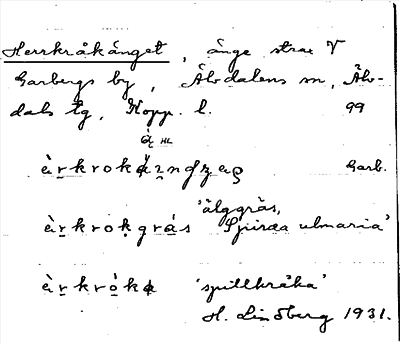 Herrkråkänget, änge strax V
Garbergs by, Älvdalens sn, Älv-
dals tg, Kopp. l. 99
Garb.
'älggräs,
àrkrokgrás Spiræa ulmaria'
àrkròka 'spillkråka'
H. Lindberg 1931.